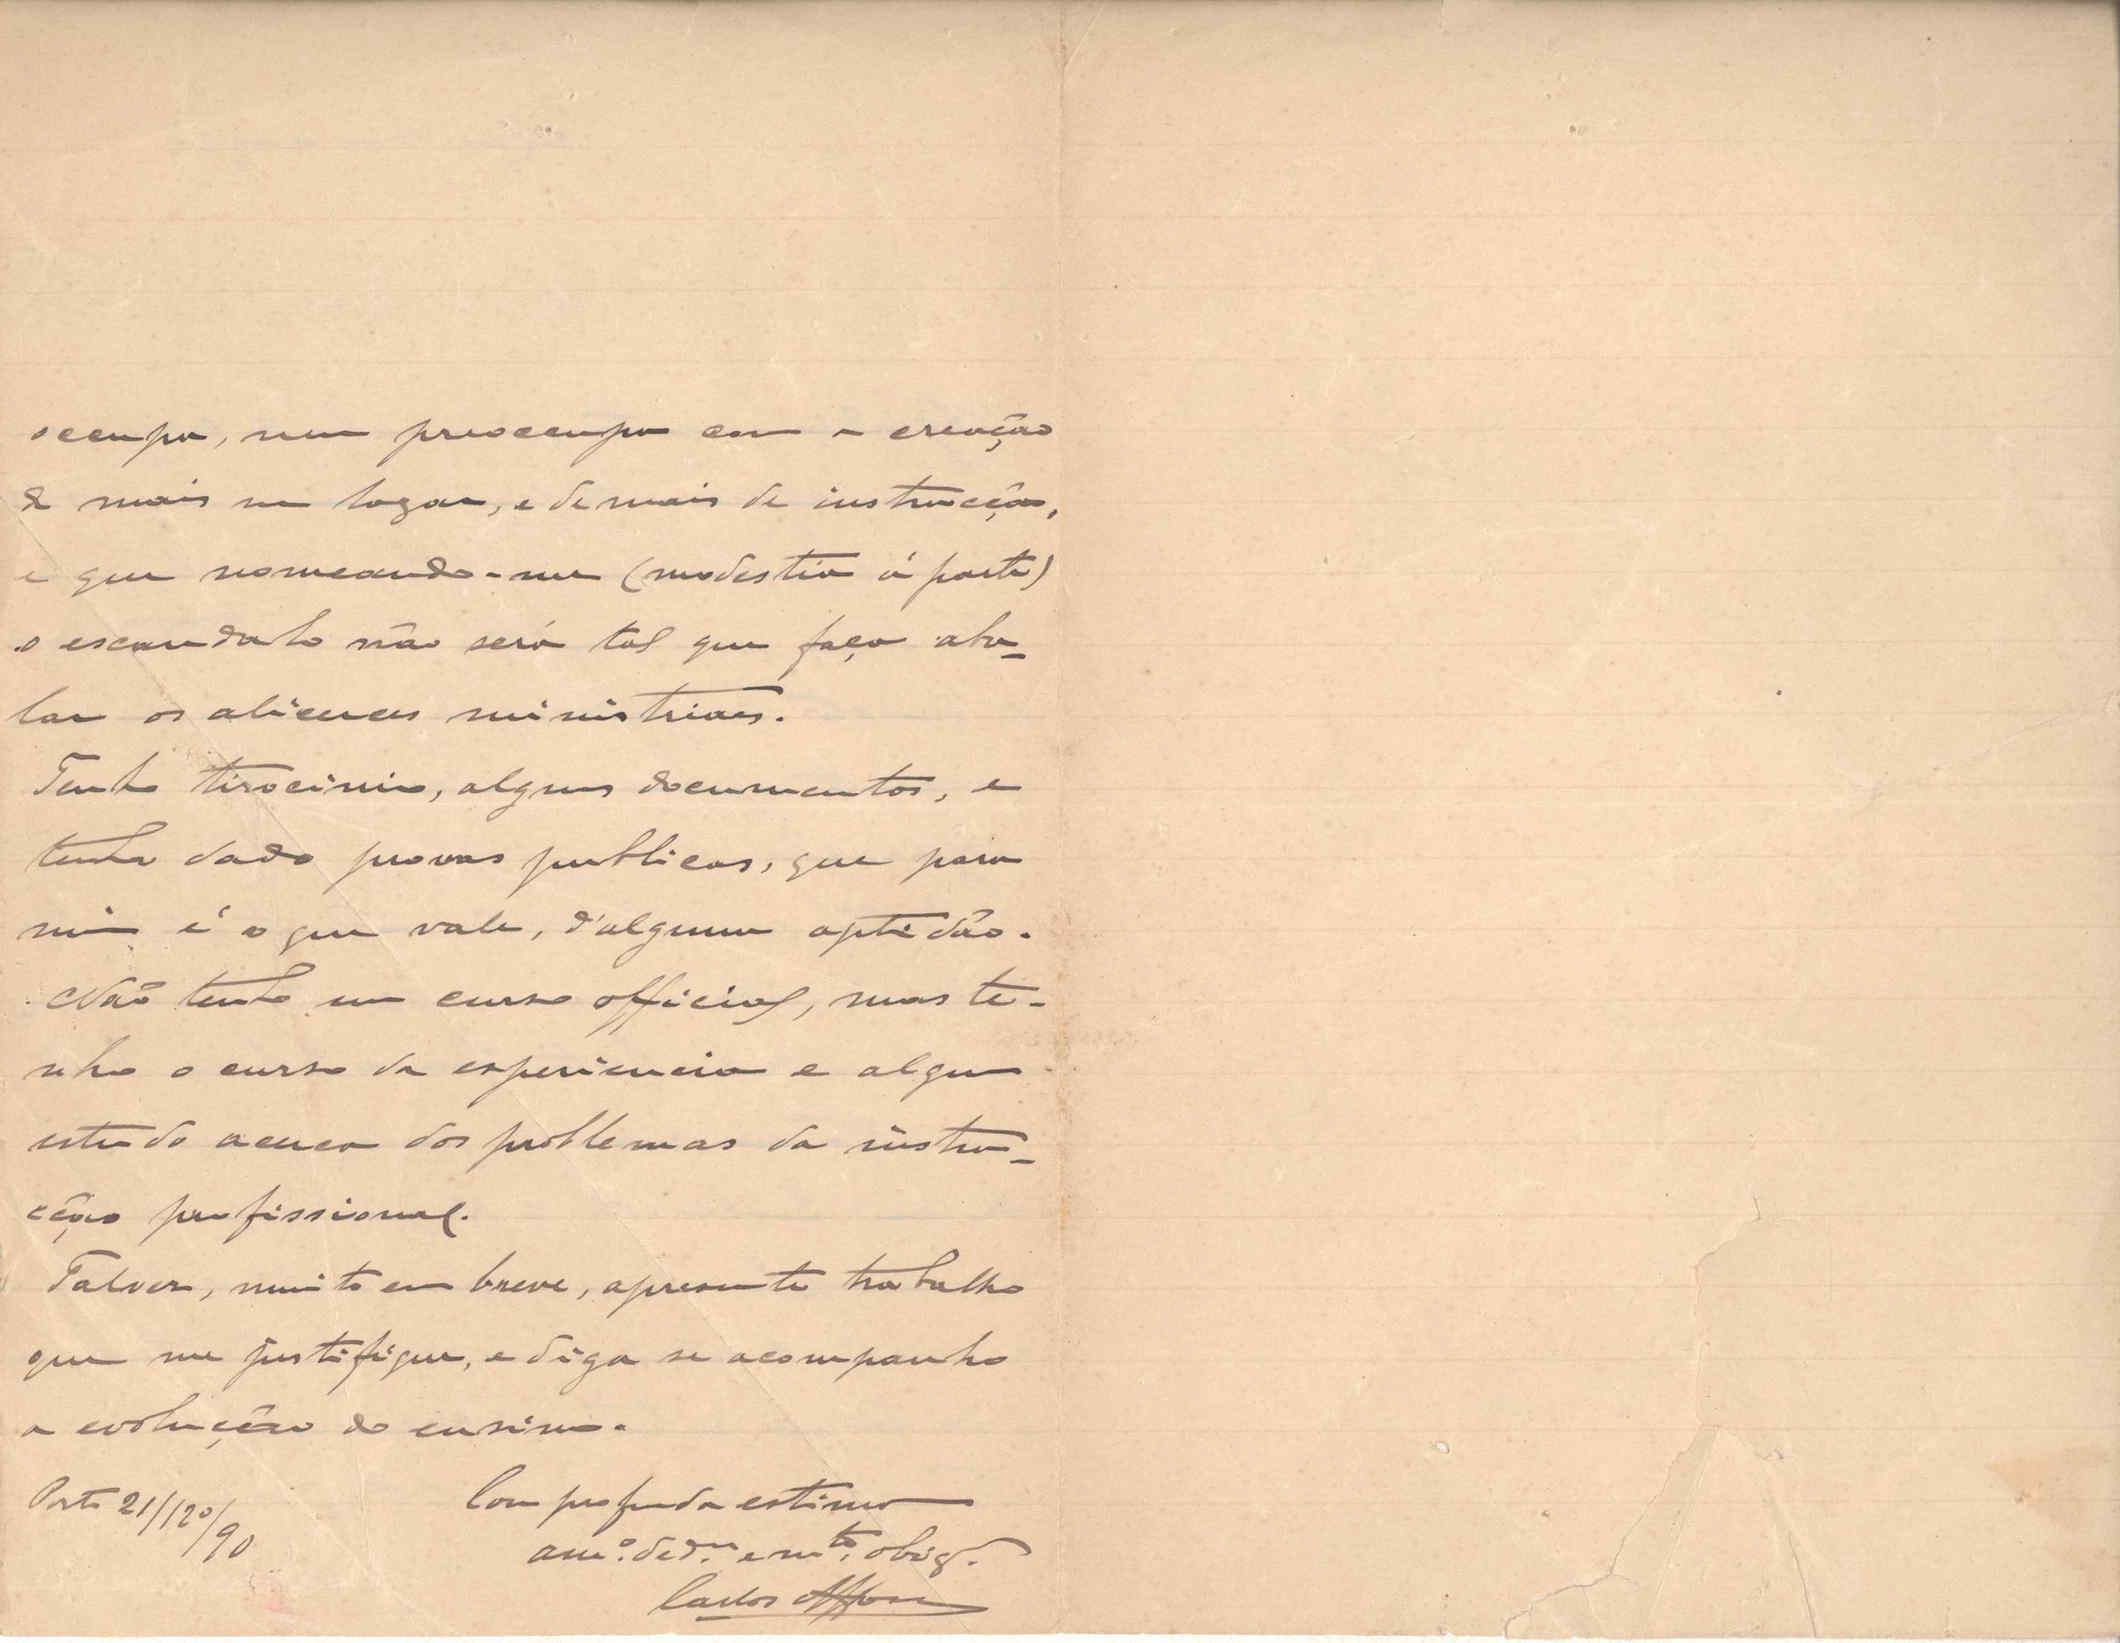 occupa, nem preoccupa com a creação
de mais um logar, e de mais de instrucção,
e que nomeando-me (modestia á parte)
o escandalo não será tal que faça aba-
lar os alicerces ministriaes.
Tenho tirocinio, alguns documentos, e
tenho dado provas publicas, que para
mim é o que vale, d'alguma aptidão.
Não tenho um curso official, mas te-
nho o curso da experiencia e algum
estudo acerca dos problemas da instru-
cção profissional.
Talvez, muito em breve, apresente trabalho
que me justifique, e diga se acompanho
a evolução do ensino.
Porto 21/120/90
Com profunda estima
am.º ded.º e m.to obrig.
Carlos Affonso